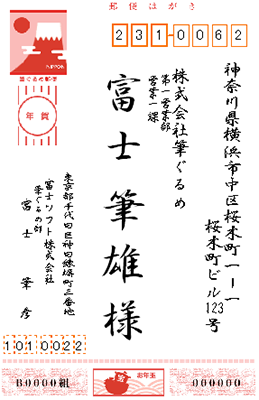 郵便はがき
NIPPON
筆ぐるめ郵便
年賀
231-0062
神奈川県横浜市中区桜木町一ー一
桜木町ビル123号
株式会社筆ぐるめ
第一営業部
営業一課
富士筆雄様
東京都千代田区神田練塀町三番地
富士ソフト株式会社
筆ぐるめ部
富士 筆彦
1010022
B0000組
お年玉
000000